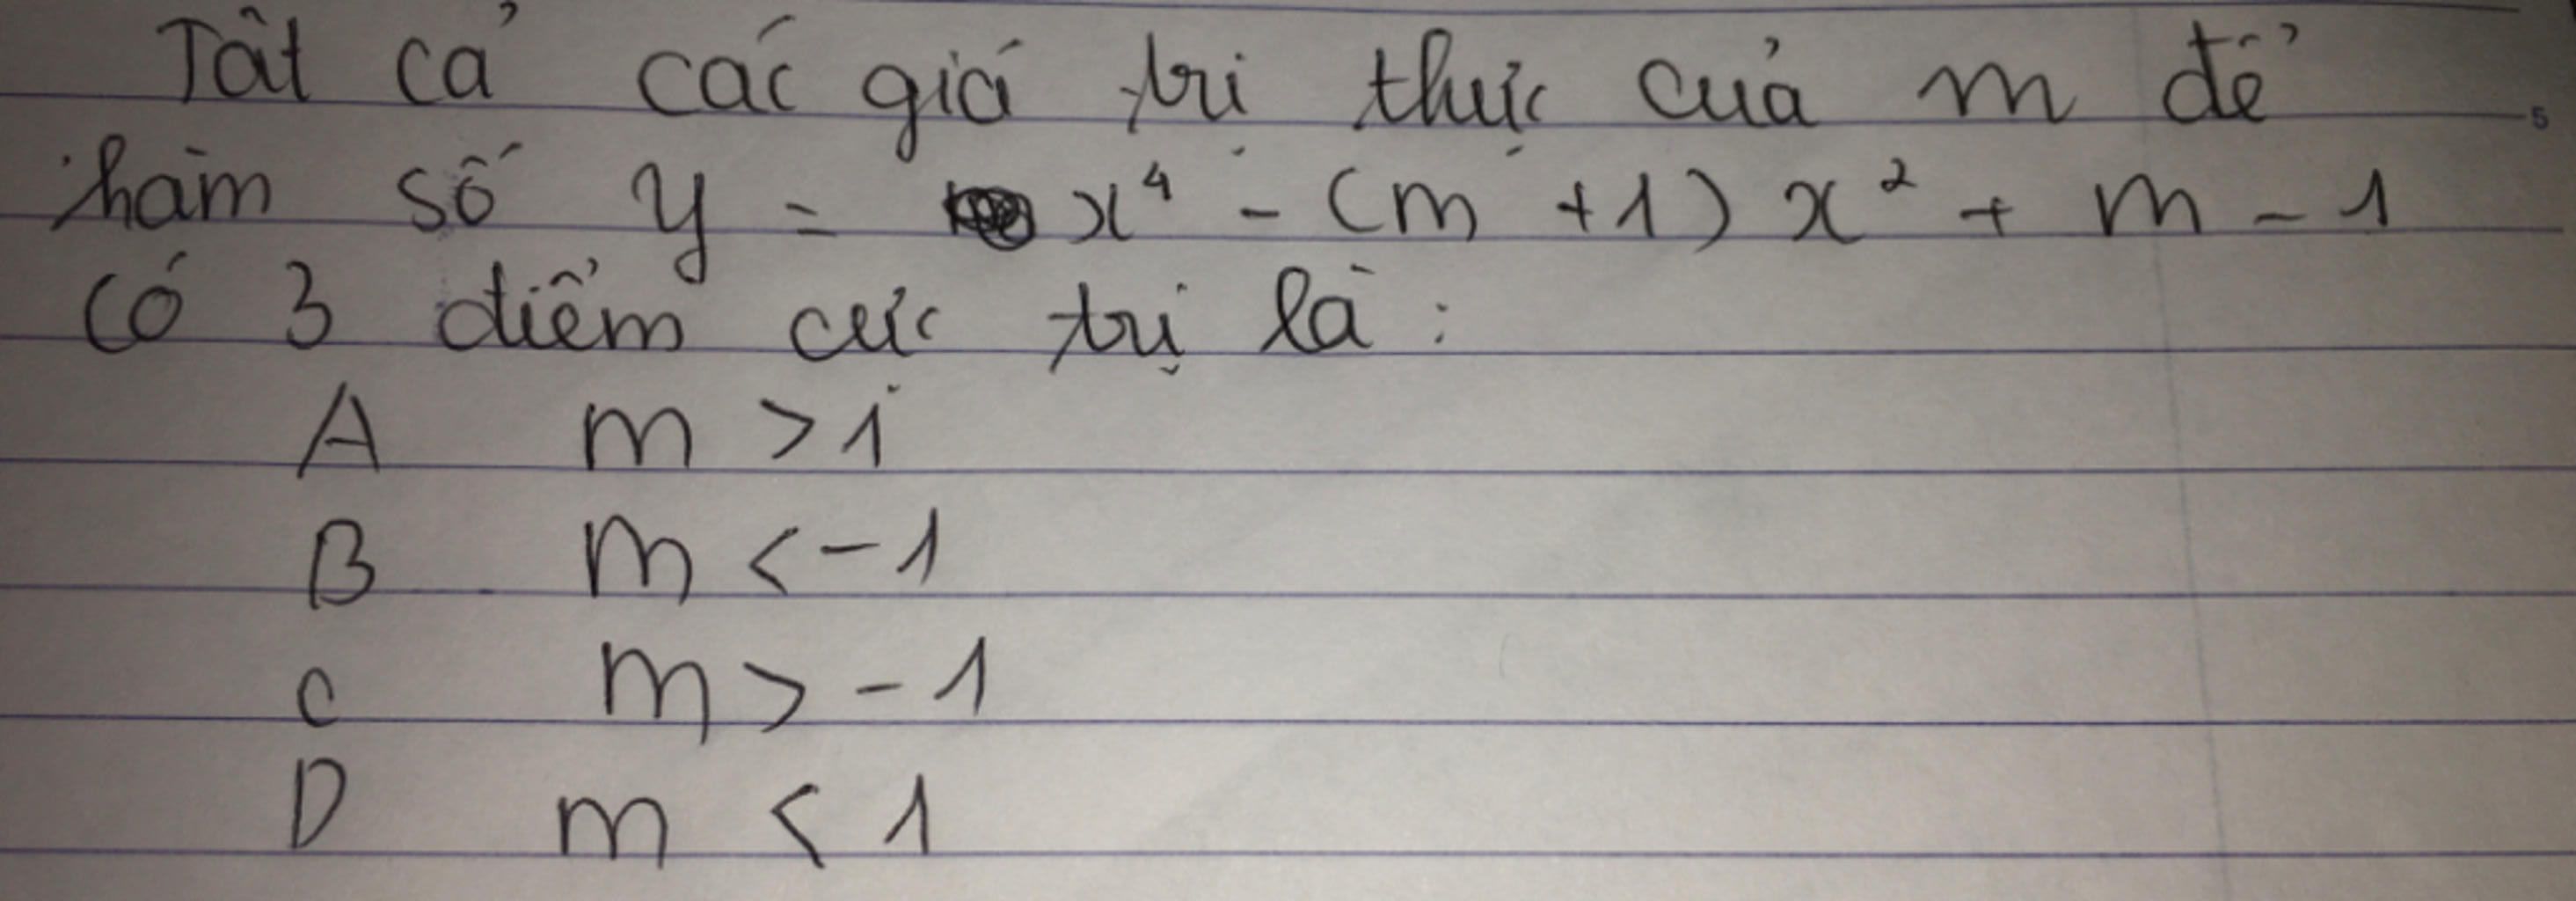 Tất cả các giá trị thực của m để
hàm số y = x⁴ - (m + 1) x² + m - 1
có 3 điểm cực trị là :
A m > 1
B m < -1
C m > -1
D m < 1